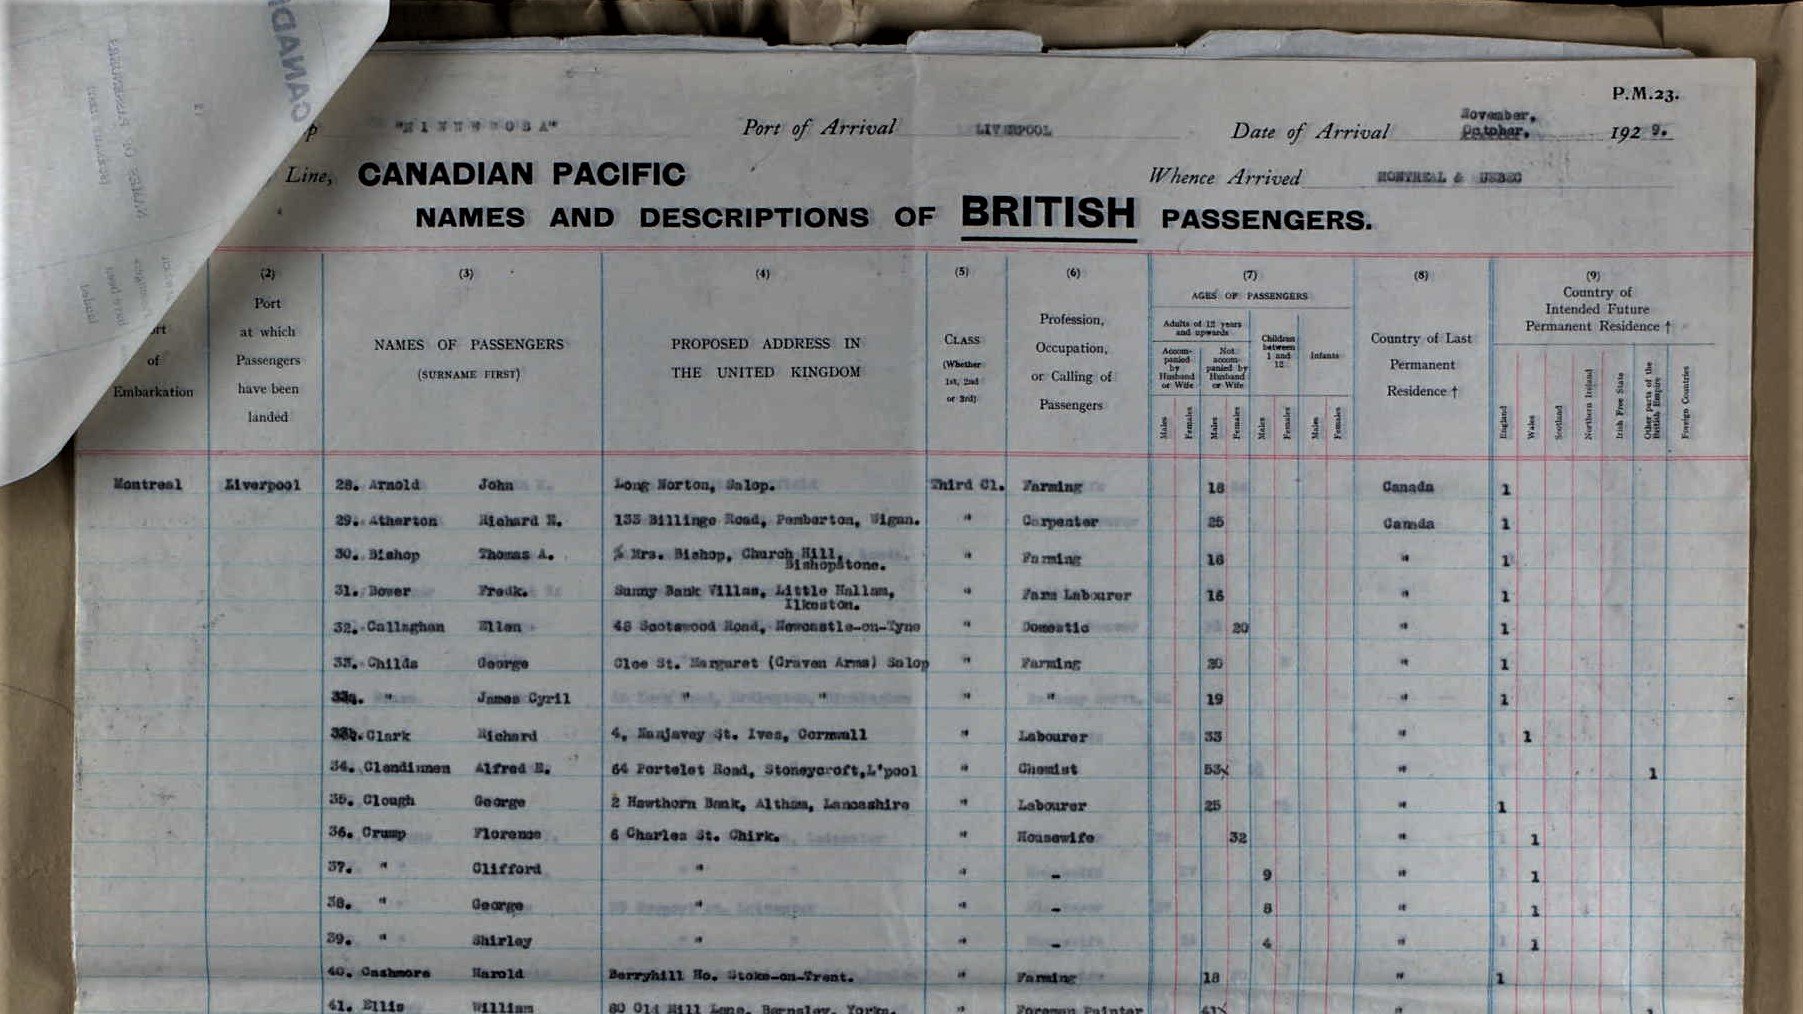 P.M.23.
"MINNEDOSA" Port of Arrival LIVERPOOL Date of Arrival November, October, 1929.
Line, CANADIAN PACIFIC Whence Arrived MONTREAL & UEBEC
NAMES AND DESCRIPTIONS OF BRITISH PASSENGERS.
(2) (3) (4) (5) (6) (7) (8) (9)
of Embarkation
Port at which Passengers have been landed
NAMES OF PASSENGERS (SURNAME FIRST)
PROPOSED ADDRESS IN THE UNITED KINGDOM
CLASS (Whether 1st, 2nd or 3rd)
Profession, Occupation, or Calling of Passengers
AGES OF PASSENGERS
Adults of 12 years and upwards
Accompanied by Husband or Wife
Not accompanied by Husband or Wife
Children between 1 and 12
Infants
Males Females Males Females Males Females Males Females
Country of Last Permanent Residence †
Country of Intended Future Permanent Residence †
England Wales Scotland Northern Ireland Irish Free State Other parts of the British Empire Foreign Countries
Montreal Liverpool 28. Arnold John Long Norton, Salop. Third Cl. Farming 18 Canada 1
29. Atherton Richard 133 Billinge Road, Pemberton, Wigan. " Carpenter 25 Canada 1
30. Bishop Thomas A. Mrs. Bishop, Church Hill, Bishopstone. " Farming 18 " 1
31. Bower Fredk. Sunny Bank Villas, Little Hallam, Ilkeston. " Farm Labourer 18 " 1
32. Callaghan Ellen 48 Scotswood Road, Newcastle-on-Tyne " Domestic 20 " 1
33. Childs George Clee St. Margaret (Craven Arms) Salop " Farming 20 " 1
33a. " James Cyril " " " " 19 " 1
33b. Clark Richard 4, St. Ives, Cornwall " Labourer 33 " 1
34. Clendinnen Alfred E. 64 Portelet Road, Stoneycroft, L'pool " Chemist 53 " 1
35. Clough George 2 Hawthorn Bank, Altham, Lancashire " Labourer 25 " 1
36. Crump Florence 6 Charles St. Chirk. " Housewife 32 " 1
37. " Clifford " " - 9 " 1
38. " George " " - 8 " 1
39. " Shirley " " - 4 " 1
40. Cashmore Harold Berryhill Ho. Stoke-on-Trent. " Farming 18 " 1
41. Ellis William 80 Old Mill Lane, Barnsley, Yorks. " Foreman Painter 41 " 1